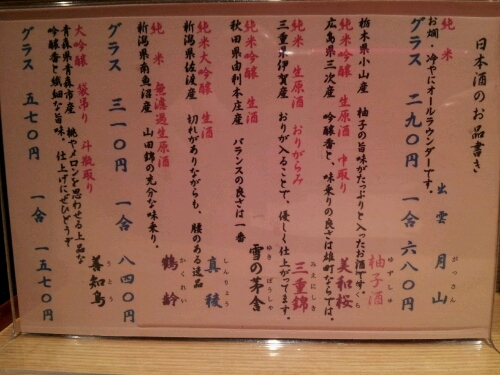 日本酒のお品書き
純米
お燗・冷やにオールラウンダーです。
出雲月山
がっさん
グラス 二九〇円 一合 六八〇円
栃木県小山産 柚子の旨味がたっぷりと入ったお酒です。
柚子酒
ゆずしゅ
純米吟醸 生原酒 中取り
広島県三次産 吟醸香と、味乗りの良さは雄町ならでは。
美和桜
純米吟醸 生原酒 おりがらみ
三重県伊賀産 おりが入ることで、優しく仕上がってます。
三重錦
みえにしき
純米吟醸 生酒
秋田県由利本荘産 バランスの良さは一番
雪の茅舎
ゆき ぼうしゃ
純米大吟醸 生酒
新潟県佐渡産 切れがありながらも、腰のある逸品
真稜
しんりょう
純米 無濾過生原酒
新潟県南魚沼産 山田錦の充分な味乗り。
鶴齢
かくれい
グラス 三一〇円 一合 八四〇円
大吟醸 袋吊り 斗瓶取り
青森県青森市産 桃やメロンを思わせる上品な
吟醸香と繊細な旨味。仕上げにぜひどうぞ
善知鳥
うとう
グラス 五七〇円 一合 一五七〇円